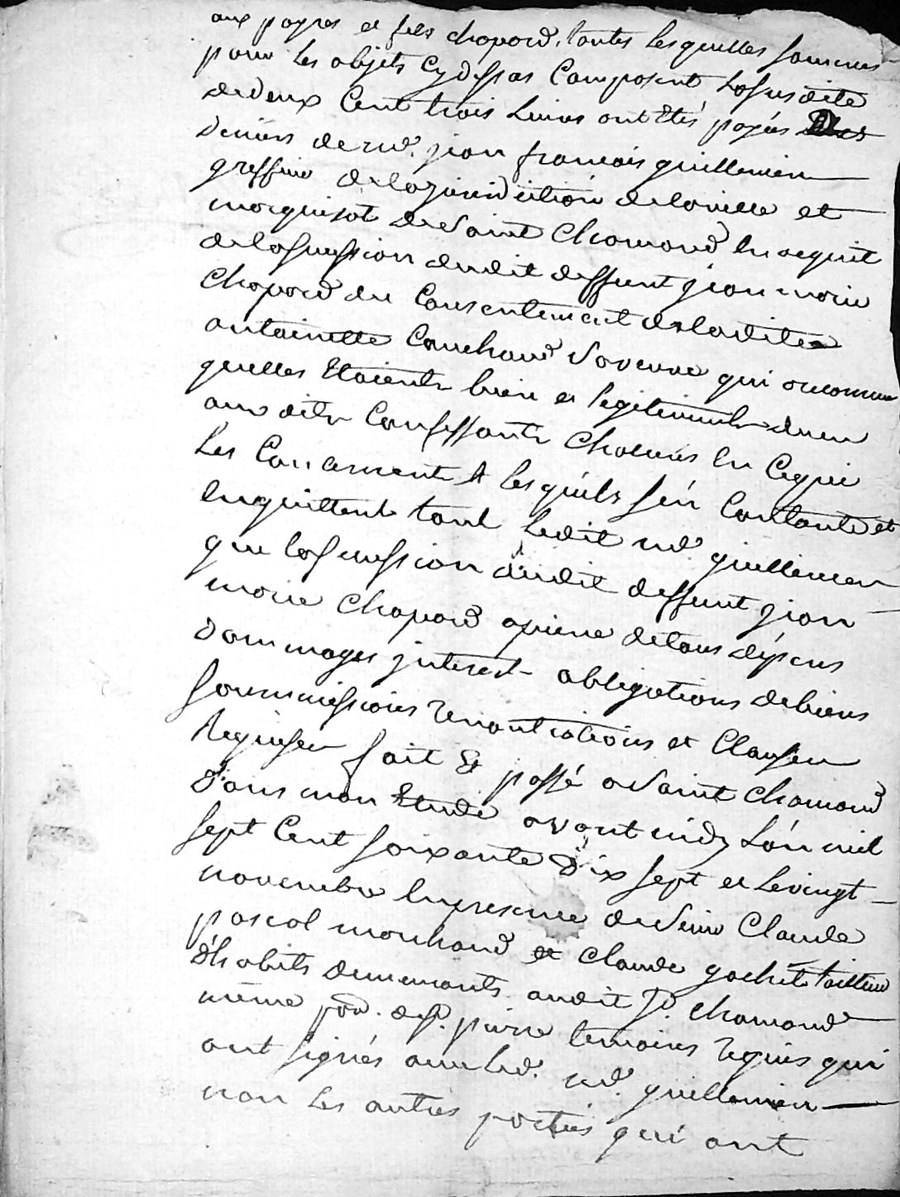 aux payres et fils chapard, toutes lesquelles sommes
pour les objets cydessas Composent lasusdite
dedeux Cent trois Livres ont Etés payés Des
Deniers de md. jean francois guillemin
greffier delajuridiction delaville et
marquisat deSaint Chamond En acquit
delasuccession dudit deffunt jean marie
Chapard du Consentement deladite
antoinette Couchoud Saveuve qui areconnu
quelles Etoient bien et legitimement dues
aux dits Confessants Chacuns En Cequi
Les Concernent & lesquels sén Contante et
Enquittent tant Ledit md. guillemin
que lasuccession dudit deffunt jean
marie Chapard apeine detous dépens
Dommages interest obligations debiens
soumissions renontiations et Clauses
Requises fait & passé aSaint Chamond
Dans mon Etude avant midy Lán mil
sept Cent soixante Dix sept et Levingt
novembre Enpresence deSieur Claude
pascal marchand et Claude gachet tailleur
d'habits demeurants audit St. Chamond
même par. de st. pierre temoins requis qui
ont signés avec led. md. guillemin
non les autres parties qui ont